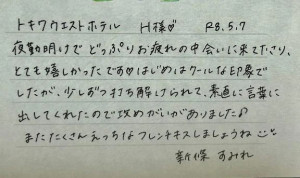 トキワウエストホテル H様♡ R8.5.7
夜勤明けでどっぷりお疲れの中会いに来て下さり、
とても嬉しかったです♡はじめはクールな印象で
したが、少しずつ打ち解けられて、素直に言葉に
出してくれたので攻めがいがありました♪
またたくさんえっちなフレンチキスしましょうね
新保 すみれ